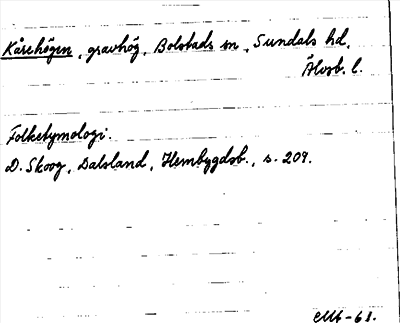 Kårehögen, gravhög, Bolstads sn, Sundals hd,
Älvsb. l.
Folketymologi.
D. Skoog, Dalsland, Hembygdsb., s. 209.